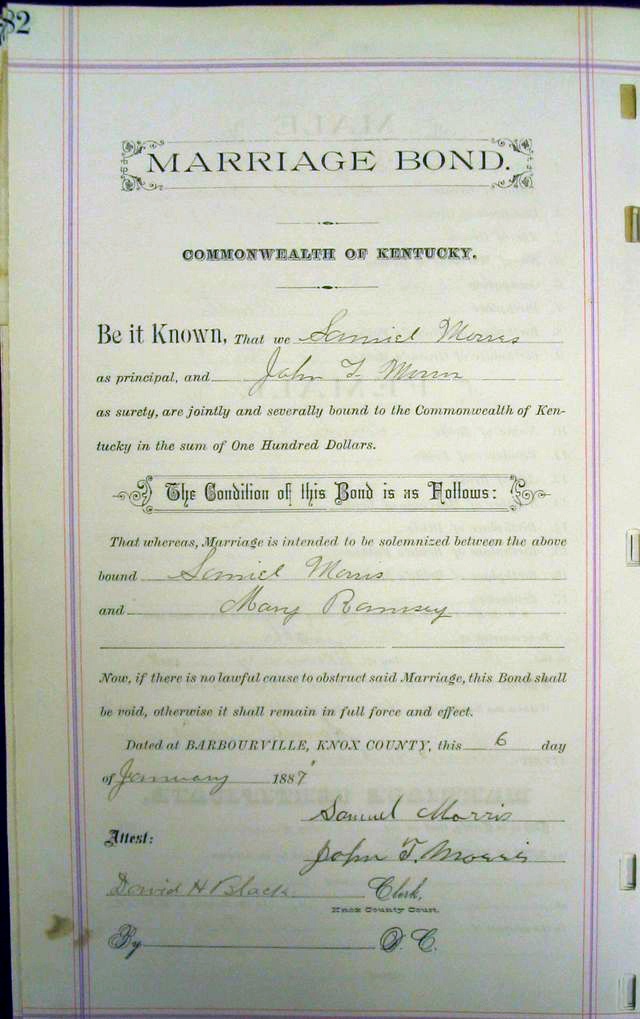 82
MARRIAGE BOND.
COMMONWEALTH OF KENTUCKY.
Be it Known, That we Samuel Morris
as principal, and John T. Morris
as surety, are jointly and severally bound to the Commonwealth of Ken-
tucky in the sum of One Hundred Dollars.
The Condition of this Bond is as Follows:
That whereas, Marriage is intended to be solemnized between the above
bound Samuel Morris
and Mary Ramsey
Now, if there is no lawful cause to obstruct said Marriage, this Bond shall
be void, otherwise it shall remain in full force and effect.
Dated at BARBOURVILLE, KNOX COUNTY, this 6 day
of January 1887
Samuel Morris
Attest:
John T. Morris
David H Black Clerk,
Knox County Court.
By D. C.